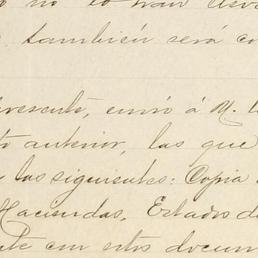 no lo han
también será co
envió á M.
anterior, las que
los siguientes: Copia
Haciendas. Estados de
con estos docum